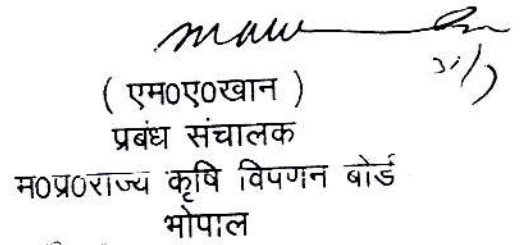 ( एम0ए0खान )
प्रबंध संचालक
म0प्र0राज्य कृषि विपणन बोर्ड
भोपाल